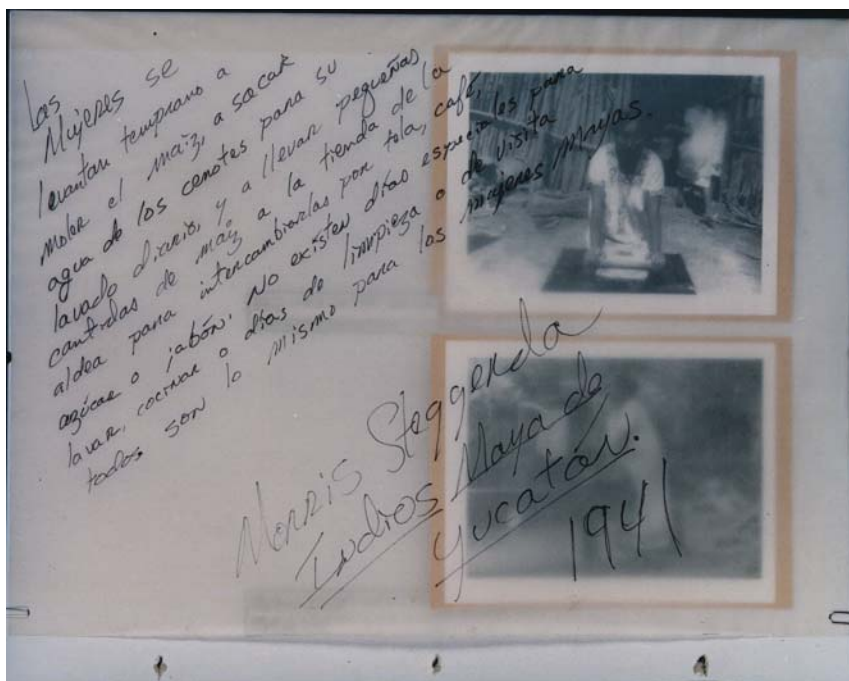 Las
Mujeres se
levantan temprano a
moler el maíz, a sacar
agua de los cenotes para su
lavado diario, y a llevar pequeñas
cantidas de maíz a la tienda de la
aldea para intercambiarlas por tela, café,
azúcar o jabón. No existen días especiales para
lavar, cocinar o días de limpieza o de visita
todos son lo mismo para las mujeres Mayas.
Morris Steggerda
Indios Maya de
Yucatán.
1941